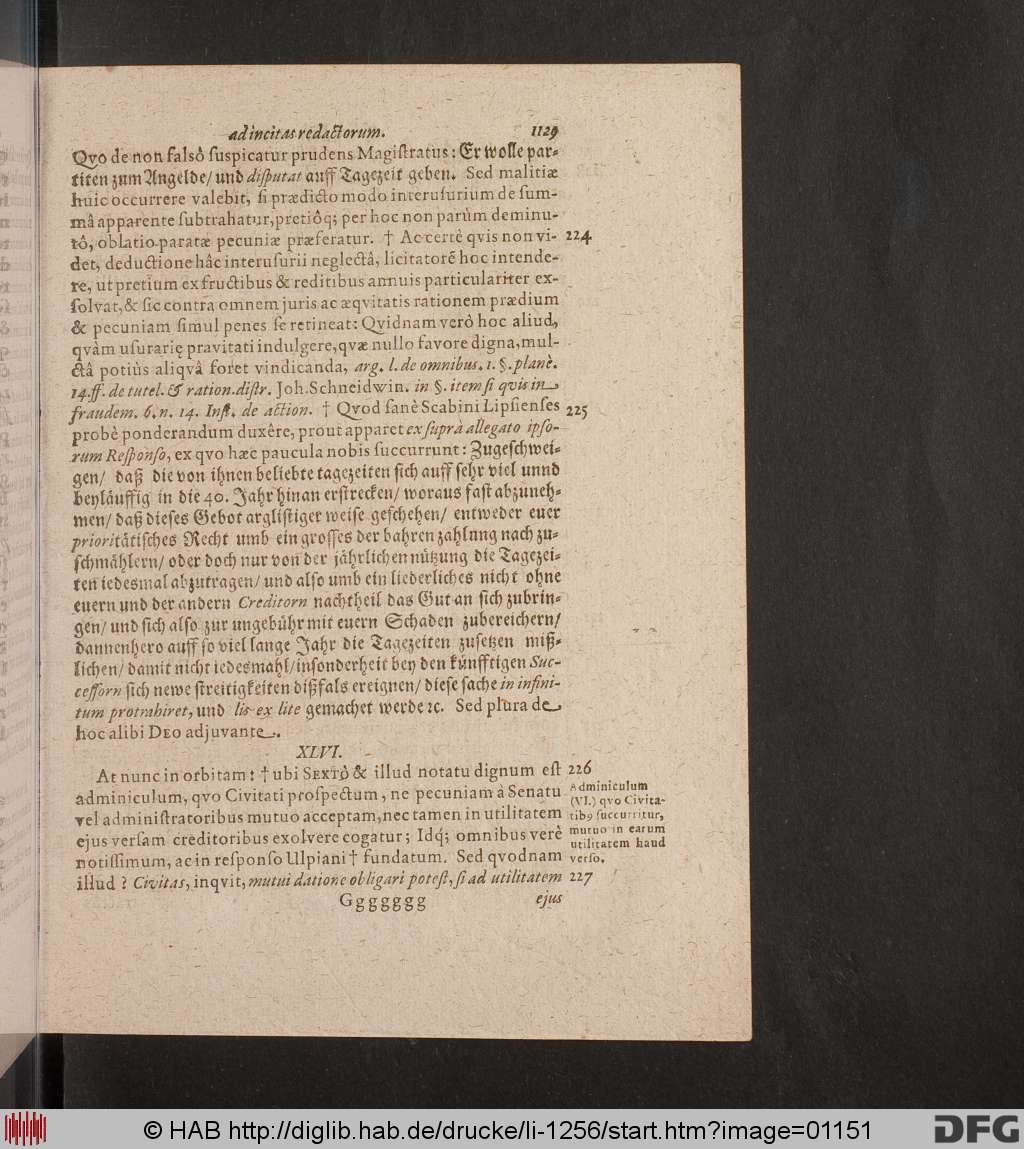 ad incitas redactorum. 1129
Qvo de non falsô suspicatur prudens Magistratus: Er wolle par-
titen zum Angelde/ und disputat auff Tagezeit geben. Sed malitiæ
huic occurrere valebit, si prædicto modo interusurium de sum-
mâ apparente subtrahatur, pretiôq; per hoc non parùm deminu-
tô, oblatio paratæ pecuniæ præferatur. † Ac certè qvis non vi- 224.
det, deductione hâc interusurii neglectâ, licitatorẽ hoc intende-
re, ut pretium ex fructibus & reditibus annuis particulariter ex-
solvat, & sic contra omnem juris ac æqvitatis rationem prædium
& pecuniam simul penes se retineat: Qvidnam verò hoc aliud,
qvàm usurarię pravitati indulgere, qvæ nullo favore digna, mul-
ctâ potiùs aliqvâ foret vindicanda, arg. l. de omnibus. 1. §. planè.
14. ff. de tutel. & ration. distr. Joh. Schneidwin. in §. item si qvis in
fraudem. 6. n. 14. Inst. de action. † Qvod sanè Scabini Lipsienses 225
probè ponderandum duxêre, prout apparet ex suprà allegato ipso-
rum Responso, ex qvo hæc paucula nobis succurrunt: Zugeschwei-
gen/ daß die von ihnen beliebte tagezeiten sich auff sehr viel unnd
beyläuffig in die 40. Jahr hinan erstrecken/ woraus fast abzuneh-
men/ daß dieses Gebot arglistiger weise geschehen/ entweder euer
prioritätisches Recht umb ein grosses der bahren zahlung nach zu-
schmählern/ oder doch nur von der jährlichen nützung die Tagezei-
ten iedesmal abzutragen/ und also umb ein liederliches nicht ohne
euern und der andern Creditorn nachtheil das Gut an sich zubrin-
gen/ und sich also zur ungebühr mit euern Schaden zubereichern/
dannenhero auff so viel lange Jahr die Tagezeiten zusetzen miß-
lichen/ damit nicht iedesmahl/ insonderheit bey den künfftigen Suc-
cessorn sich newe streitigkeiten dißfals ereignen/ diese sache in infini-
tum protrahiret, und lis ex lite gemachet werde ꝛc. Sed plura de
hoc alibi DEO adjuvante.
XLVI.
At nunc in orbitam: † ubi SEXTÒ & illud notatu dignum est 226
adminiculum, qvo Civitati prospectum, ne pecuniam à Senatu
vel administratoribus mutuo acceptam, nec tamen in utilitatem
ejus versam creditoribus exolvere cogatur; Idq; omnibus verè
notissimum, ac in responso Ulpiani † fundatum. Sed qvodnam
illud? Civitas, inqvit, mutui datione obligari potest, si ad utilitatem 227
Adminiculum
(VI.) qvo Civita-
tibꝰ succurritur,
mutuo in earum
utilitatem haud
verso.
Ggggggg ejus
© HAB http://diglib.hab.de/drucke/li-1256/start.htm?image=01151
DFG